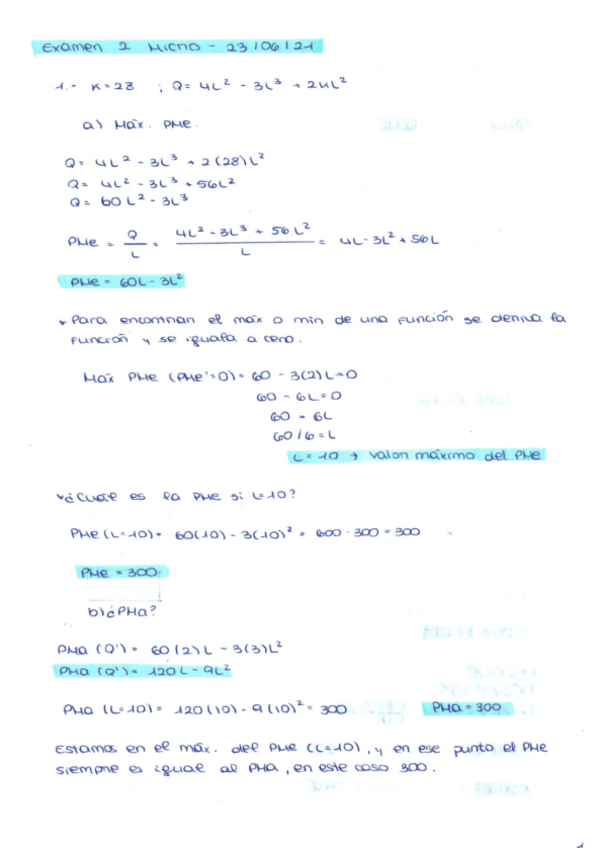 Examen 2 Micro - 23/06/21
1.- K=28 ; Q= 4L² - 3L³ + 2KL²
a) Máx. PMe.
Q= 4L² - 3L³ + 2(28)L²
Q= 4L² - 3L³ + 56L²
Q= 60L² - 3L³
PMe = Q/L = (4L² - 3L³ + 56L²)/L = 4L - 3L² + 56L
PMe = 60L - 3L²
* Para encontrar el máx o min de una función se deriva la
función y se iguala a cero.
Máx PMe (PMe'=0) = 60 - 3(2)L=0
60 - 6L=0
60 = 6L
60/6 = L
L = 10 → valor máximo del PMe
* ¿Cuál es la PMe si L=10?
PMe (L=10) = 60(10) - 3(10)² = 600 - 300 = 300
PMe = 300
b) ¿PMa?
PMa (Q') = 60(2)L - 3(3)L²
PMa (Q') = 120L - 9L²
PMa (L=10) = 120(10) - 9(10)² = 300 PMa = 300
Estamos en el máx. del PMe (L=10), y en ese punto el PMe
siempre es igual al PMA, en este caso 300.